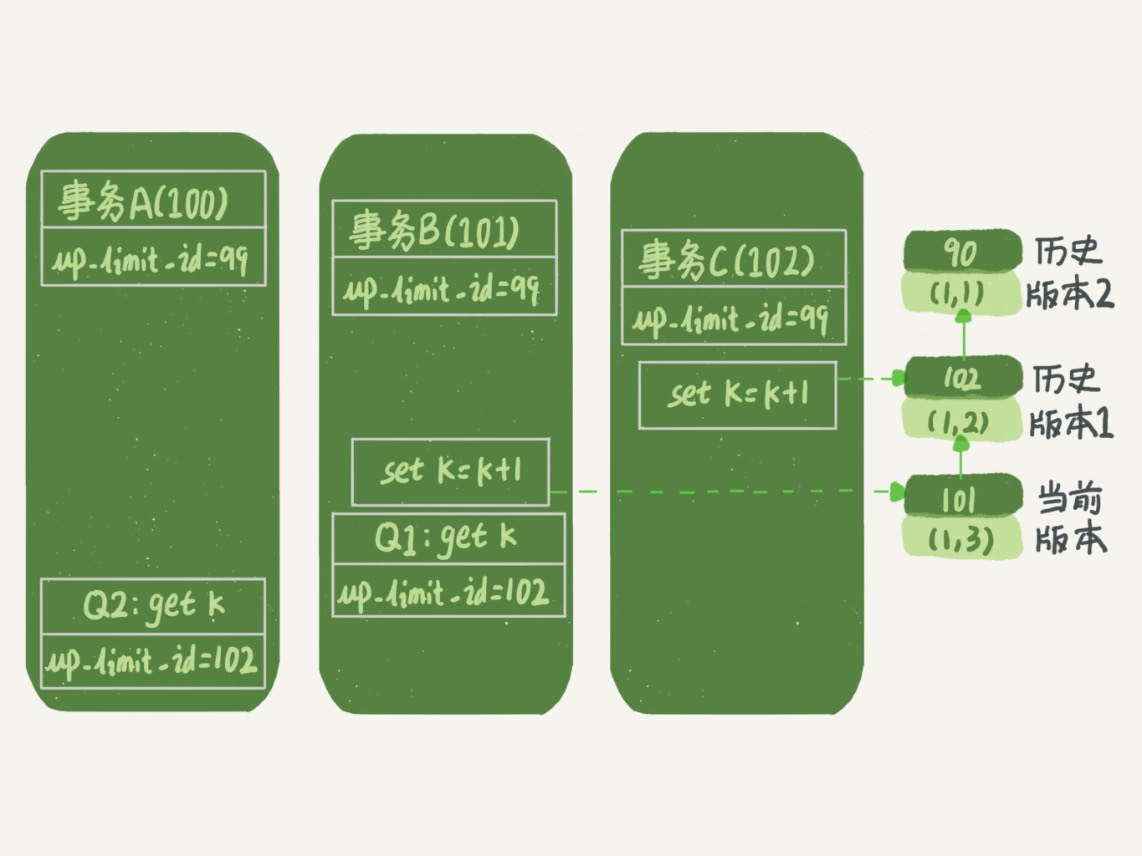 事务A(100)
up-limit-id=99
Q2: get k
up-limit-id=102
事务B(101)
up-limit-id=99
set k=k+1
Q1: get k
up-limit-id=102
事务C(102)
up-limit-id=99
set k=k+1
90
(1,1)
历史
版本2
102
(1,2)
历史
版本1
101
(1,3)
当前
版本